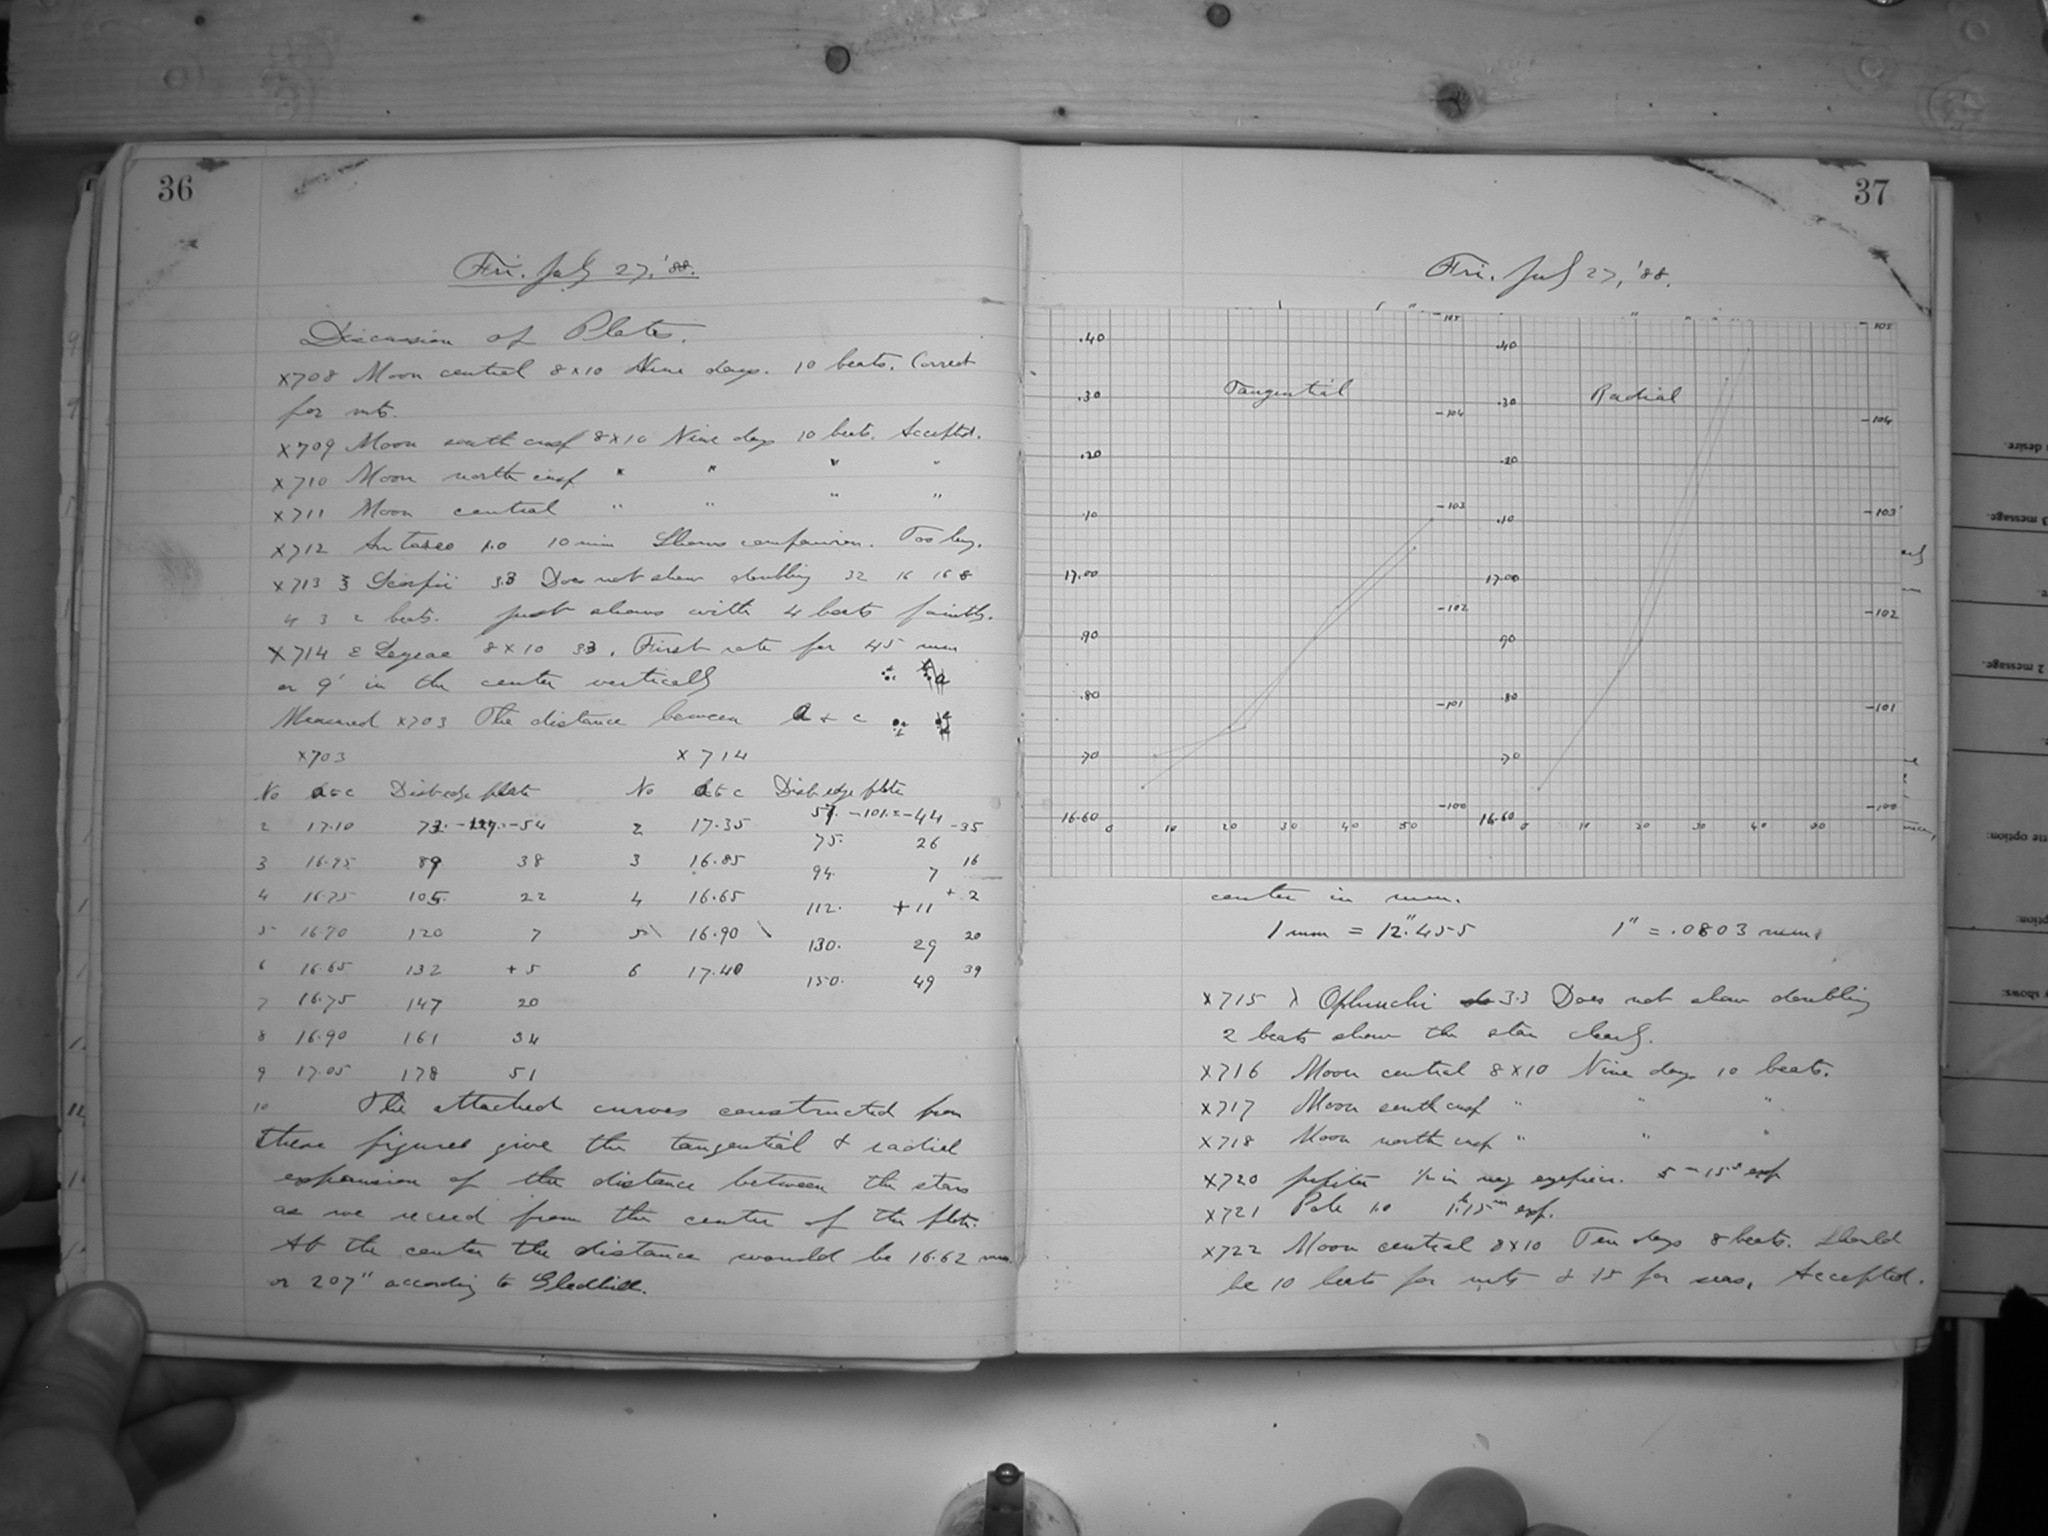 36
Fri. July 27, '88.
Discussion of Plates.
X708 Moon central 8x10 Nine days. 10 beats. Correct
for mts.
X709 Moon south cusp 8x10 Nine days 10 beats. Accepted.
X710 Moon north cusp " " " "
X711 Moon central " " " "
X712 Antares 1.0 10 min Shows companion. Too long.
X713 ξ Scorpii 3.3 Does not show doubling 32 16 16 8
4 3 2 beats. Just shows with 4 beats faintly.
X714 ε Lyrae 8x10 33. First rate for 45 mm
or 9' in the center vertically
Measured X703 The distance between a + c
X703 X714
No a & c Dist edge plate No a & c Dist edge plate
2 17.10 73. -127. -54 2 17.35 57. -101. = -44 -35
3 16.95 89 38 3 16.85 75. 26 16
4 16.75 105. 22 4 16.65 94. 7 + 2
5 16.70 120 7 5 16.90 112. +11 20
6 16.65 132 +5 6 17.40 130. 29 39
7 16.75 147 20 150. 49
8 16.90 161 34
9 17.05 178 51
10 The attached curves constructed from
these figures give the tangential & radial
expansion of the distance between the stars
as we recede from the center of the plate.
At the center the distance would be 16.62 mm.
or 207" according to Gledhill.
37
Fri. July 27, '88.
-105 -105
.40 .40
Tangential Radial
.30 -104 .30 -104
.20 .20
.10 -103 .10 -103
17.00 17.00
-102 -102
.90 .90
.80 .80
-101 -101
.70 .70
-100 -100
16.60 16.60
0 10 20 30 40 50 0 10 20 30 40 50
center in mm.
1 mm = 12".455 1" = .0803 mm.
X715 λ Ophiuchi 3.3 Does not show doubling
2 beats show the star clearly.
X716 Moon central 8x10 Nine days 10 beats.
X717 Moon south cusp " " "
X718 Moon north cusp " " "
X720 Jupiter 1/2 in neg eyepiece. 5 - 15s exp
X721 Pole 1.0 1h 15m exp.
X722 Moon central 8x10 Ten days 8 beats. Should
be 10 beats for mts & 15 for seas, Accepted.
desire.
3 message.
2 message.
option:
shows: